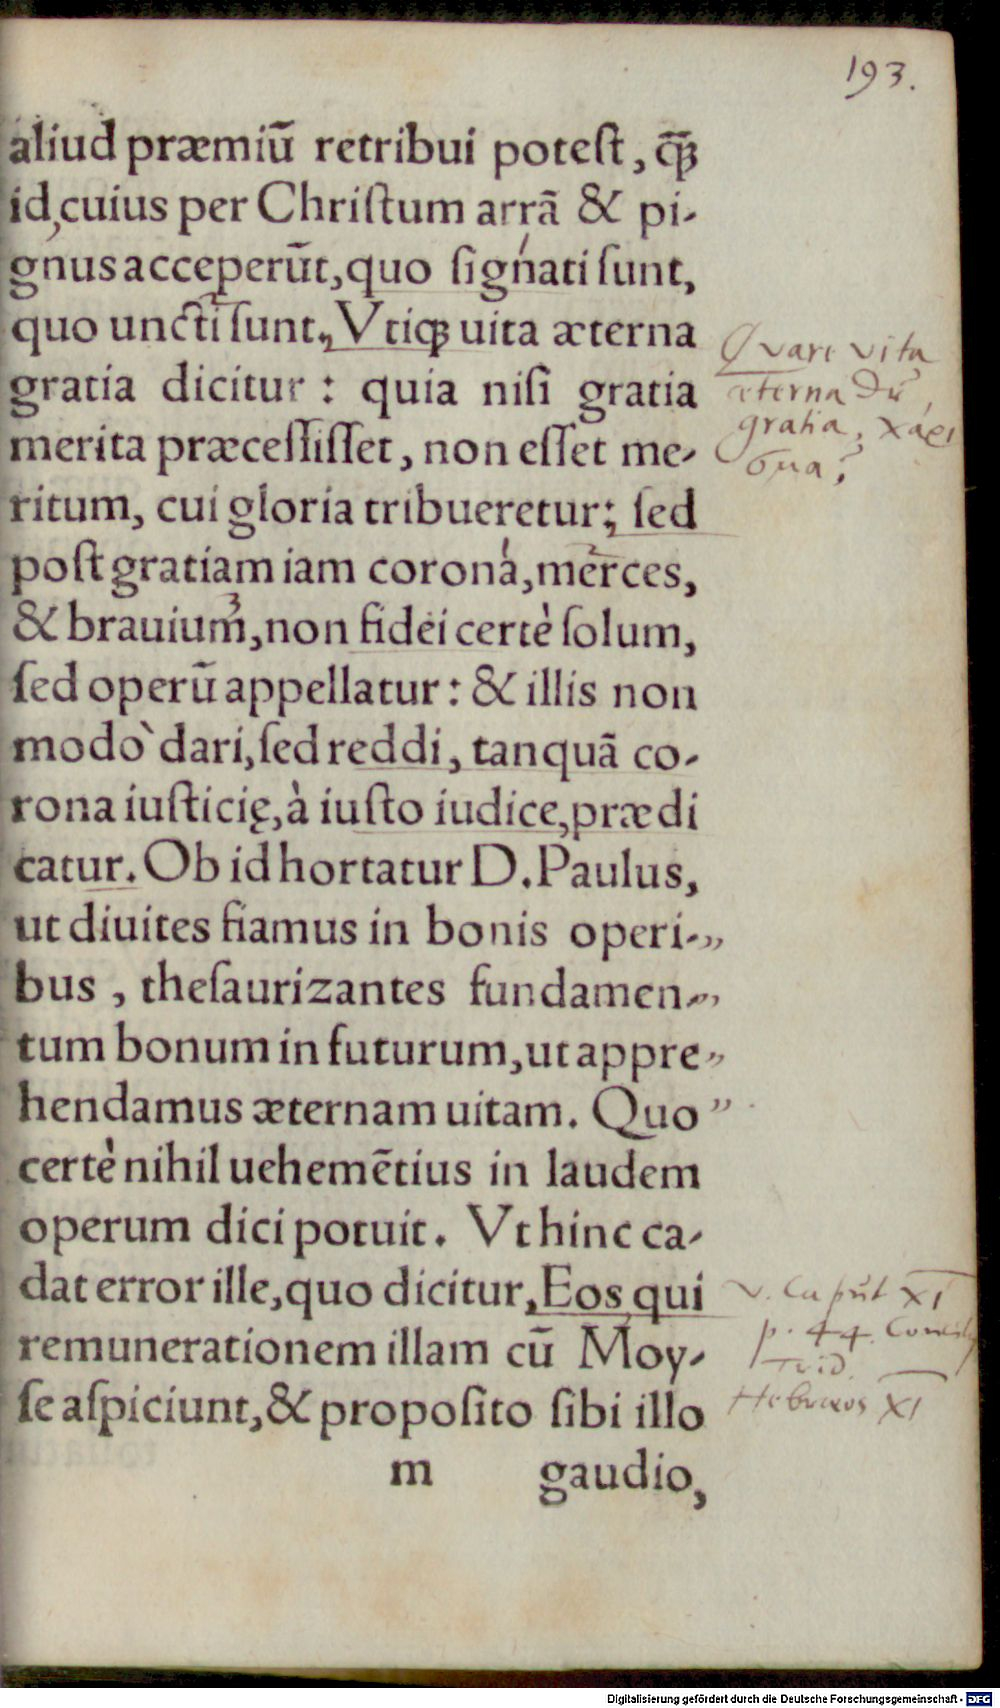 193.
aliud præmiū retribui poteſt, ꝙ̄
id, cuius per Chriſtum arrā & pi-
gnus acceperūt, quo ſignati ſunt,
quo uncti ſunt, Vtiqꝫ uita æterna
gratia dicitur : quia niſi gratia
merita præceſſiſſet, non eſſet me-
ritum, cui gloria tribueretur; ſed
poſt gratiam iam corona, merces,
& brauium, non fidei certè ſolum,
ſed operū appellatur : & illis non
modò dari, ſed reddi, tanquā co-
rona iuſticię, à iuſto iudice, prædi
catur. Ob id hortatur D. Paulus,
ut diuites fiamus in bonis operi-„
bus , theſaurizantes fundamen-„
tum bonum in futurum, ut appre„
hendamus æternam uitam. Quo ”
certè nihil uehemētius in laudem
operum dici potuit. Vt hinc ca-
dat error ille, quo dicitur, Eos qui
remunerationem illam cū Moy-
ſe aſpiciunt, & propoſito ſibi illo
m gaudio,
Quare vita
æterna Dū
gratia, χάρι
σμα?
v. Caput XI
p. 44. Concilij
Trid.
Hebræos XI
Digitalisierung gefördert durch die Deutsche Forschungsgemeinschaft - DFG